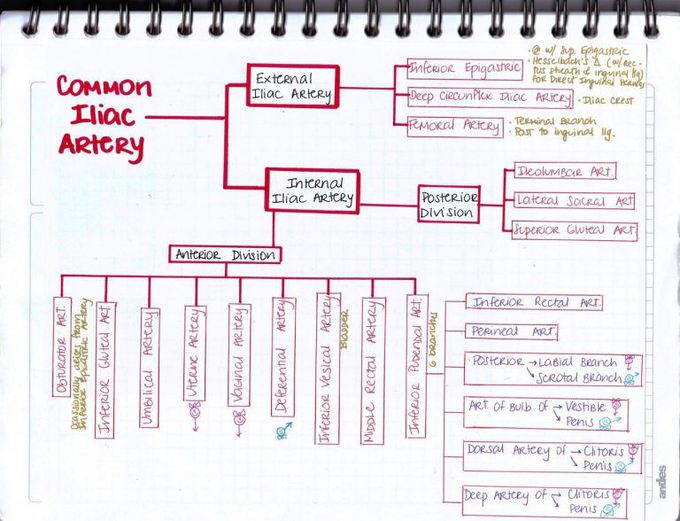 COMMON
ILIAC
ARTERY
External
Iliac Artery
Inferior Epigastric
@ w/ Sup. Epigastric
Hesselbach's Δ (w/ rec-
tus sheath & inguinal lig)
for Direct Inguinal Hernia
Deep Circunflex Iliac Artery
Iliac Crest
Femoral Artery
Terminal Branch
Post to inguinal lig.
Internal
Iliac Artery
Posterior
Division
Ileolumbar Art.
Lateral Sacral Art
Superior Gluteal Art.
Anterior Division
Obturator Art.
Ocasionally arises from
Inferior Epigastric Artery
Inferior Gluteal Art.
Umbilical Artery
Uterine Artery
Vaginal Artery
Deferential Artery
Inferior Vesical Artery
Bladder
Middle Rectal Artery
Inferior Pudendal Art.
6 branches
Inferior Rectal Art.
Perineal Art.
Posterior → Labial Branch ♀
↘ Scrotal Branch ♂
Art. of Bulb of → Vestible ♀
↘ Penis ♂
Dorsal Artery of → Clitoris ♀
↘ Penis ♂
Deep Artery of → Clitoris ♀
↘ Penis ♂
andes